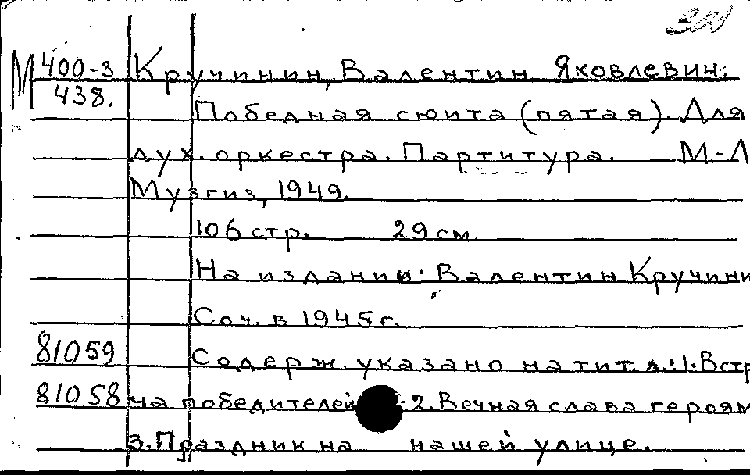 М 400-3 Кручинин, Валентин Яковлевич:
438. Победная сюита (пятая). Для
дух. оркестра. Партитура. М-Л
Музгиз, 1949.
106 стр. 29 см
На издании: Валентин Кручини
Соч. в 1945 г.
81059 Содерж. указано на тит. л.: 1. Встр
81058 ча победителей 2. Вечная слава героям
3. Праздник на нашей улице.